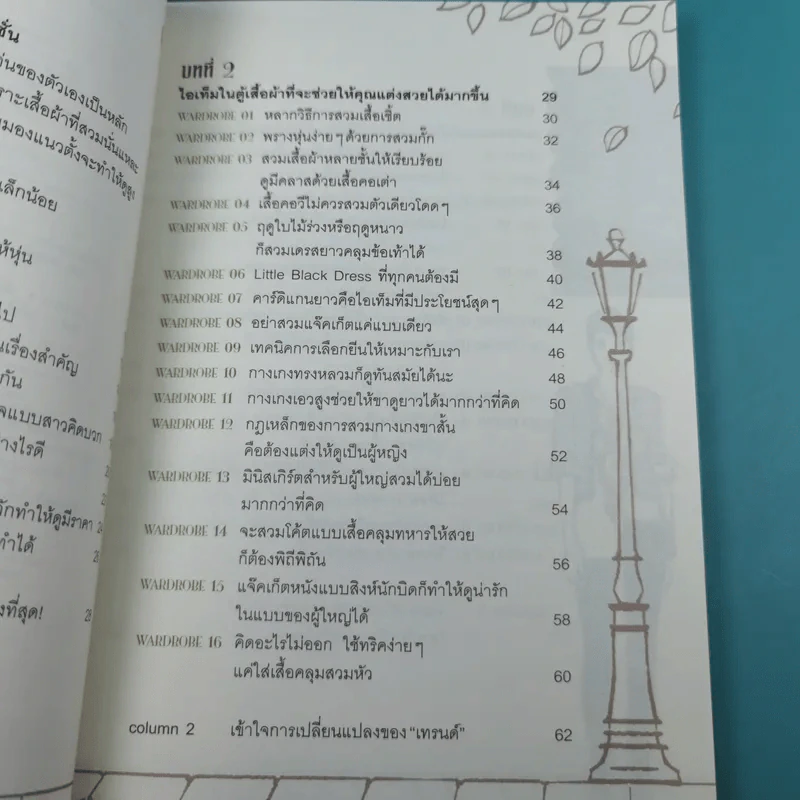 ชั่น
่นของตัวเองเป็นหลัก
ราะเสื้อผ้าที่สวมนั่นแหละ
มองแนวตั้งจะทำให้ดูสูง
เล็กน้อย
ห้หุ่น
ไป
นเรื่องสำคัญ
กัน
จแบบสาวคิดบวก
างไรดี
วักทำให้ดูมีราคา
ทำได้
งที่สุด!
บทที่ 2
ไอเท็มในตู้เสื้อผ้าที่จะช่วยให้คุณแต่งสวยได้มากขึ้น 29
WARDROBE 01 หลากวิธีการสวมเสื้อเชิ้ต 30
WARDROBE 02 พรางหุ่นง่ายๆ ด้วยการสวมกั๊ก 32
WARDROBE 03 สวมเสื้อผ้าหลายชั้นให้เรียบร้อย
ดูมีคลาสด้วยเสื้อคอเต่า 34
WARDROBE 04 เสื้อคอวีไม่ควรสวมตัวเดียวโดดๆ 36
WARDROBE 05 ฤดูใบไม้ร่วงหรือฤดูหนาว
ก็สวมเดรสยาวคลุมข้อเท้าได้ 38
WARDROBE 06 Little Black Dress ที่ทุกคนต้องมี 40
WARDROBE 07 คาร์ดิแกนยาวคือไอเท็มที่มีประโยชน์สุดๆ 42
WARDROBE 08 อย่าสวมแจ๊คเก็ตแค่แบบเดียว 44
WARDROBE 09 เทคนิคการเลือกยีนให้เหมาะกับเรา 46
WARDROBE 10 กางเกงทรงหลวมก็ดูทันสมัยได้นะ 48
WARDROBE 11 กางเกงเอวสูงช่วยให้ขาดูยาวได้มากกว่าที่คิด 50
WARDROBE 12 กฎเหล็กของการสวมกางเกงขาสั้น
คือต้องแต่งให้ดูเป็นผู้หญิง 52
WARDROBE 13 มินิสเกิร์ตสำหรับผู้ใหญ่สวมได้บ่อย
มากกว่าที่คิด 54
WARDROBE 14 จะสวมโค้ตแบบเสื้อคลุมทหารให้สวย
ก็ต้องพิถีพิถัน 56
WARDROBE 15 แจ๊คเก็ตหนังแบบสิงห์นักบิดก็ทำให้ดูน่ารัก
ในแบบของผู้ใหญ่ได้ 58
WARDROBE 16 คิดอะไรไม่ออก ใช้ทริคง่ายๆ
แค่ใส่เสื้อคลุมสวมหัว 60
column 2 เข้าใจการเปลี่ยนแปลงของ “เทรนด์” 62